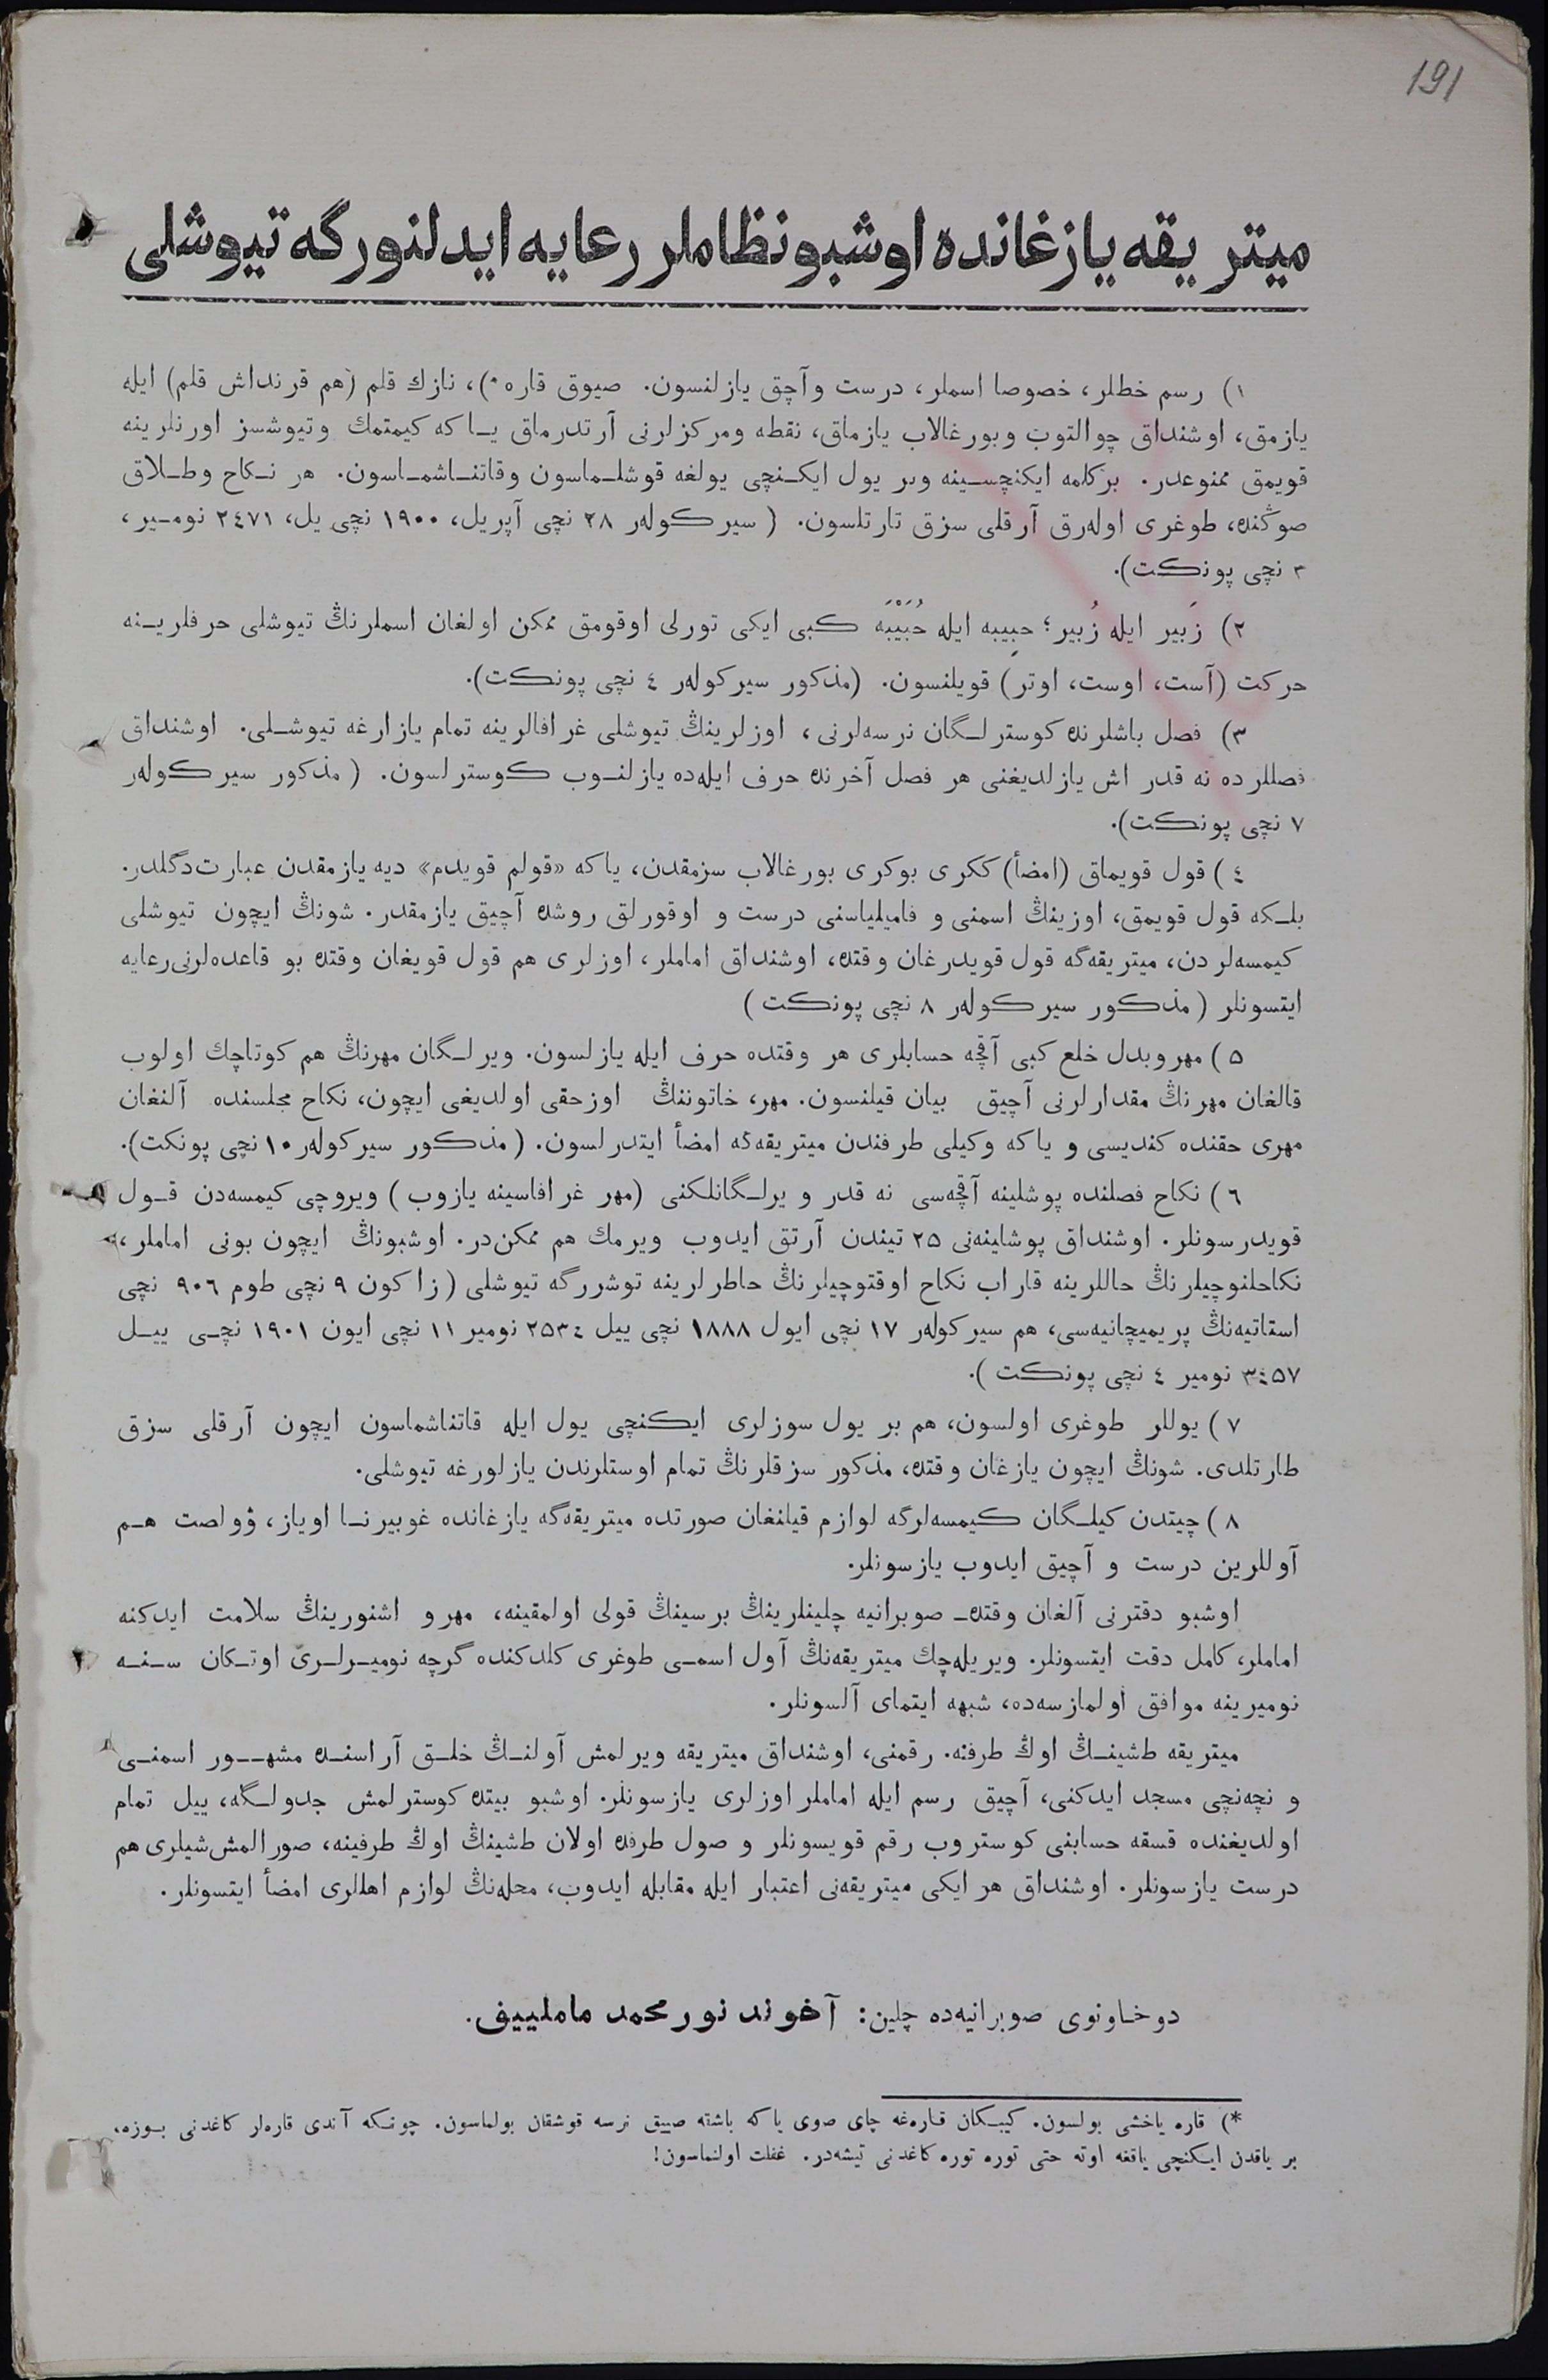 191
میتریقه یازغانده اوشبو نظاملر رعایه ایدلنورگه تیوشلی
١) رسم خطلر، خصوصا اسملر، درست وآچق یازلنسون. صیوق قاره *)، نازك قلم (هم قرنداش قلم) ایله
یازمق، اوشنداق چوالتوب وبورغالاب یازماق، نقطه ومرکزلرنی آرتدرماق یـا که کیمتمك وتیوشسز اورنلرینه
قویمق ممنوعدر. برکلمه ایکنچسـینه وبر یول ایکـنچی یولغه قوشلـماسون وقاتنـاشمـاسون. هر نـکاح وطـلاق
صوڭنده، طوغری اوله‌رق آرقلی سزق تارتلسون. (سیرکوله‌ر ٢٨ نچی آپریل، ١٩٠٠ نچی یل، ٢٤٧١ نومـیر،
٣ نچی پونکت).
٢) زَبیر ایله زُبیر؛ حبِیبه ایله حُبَیْبَه کبی ایکی تورلی اوقومق ممکن اولغان اسملرنڭ تیوشلی حرفلریـنه
حرکت (آست، اوست، اوتر) قویلنسون. (مذکور سیرکوله‌ر ٤ نچی پونکت).
٣) فصل باشلرنده کوسترلـگان نرسه‌لرنی، اوزلرینڭ تیوشلی غرافالرینه تمام یازارغه تیوشـلی. اوشنداق
فصللرده نه قدر اش یازلدیغنی هر فصل آخرنده حرف ایله‌ده یازلنـوب کوسترلسون. (مذکور سیرکوله‌ر
٧ نچی پونکت).
٤) قول قویماق (امضأ) ککری بوکری بورغالاب سزمقدن، یاکه «قولم قویدم» دیه یازمقدن عبارت‌دگلدر.
بلـکه قول قویمق، اوزینڭ اسمنی و فامیلیاسنی درست و اوقورلق روشده آچیق یازمقدر. شونڭ ایچون تیوشلی
کیمسه‌لردن، میتریقه‌گه قول قویدرغان وقتده، اوشنداق اماملر، اوزلری هم قول قویغان وقتده بو قاعده‌لرنی‌رعایه
ایتسونلر (مذکور سیرکوله‌ر ٨ نچی پونکت)
٥) مهروبدل خلع کبی آقچه حسابلری هر وقتده حرف ایله یازلسون. ویرلـگان مهرنڭ هم کوتاچك اولوب
قالغان مهرنڭ مقدارلرنی آچیق بیان قیلنسون. مهر، خاتوننڭ اوزحقی اولدیغی ایچون، نکاح مجلسنده آلنغان
مهری حقنده کندیسی و یاکه وکیلی طرفندن میتریقه‌گه امضأ ایتدرلسون. (مذکور سیرکوله‌ر ١٠ نچی پونکت).
٦) نکاح فصلنده پوشلینه آقچه‌سی نه قدر و یرلـگانلکنی (مهر غرافاسینه یازوب) ویروچی کیمسه‌دن قـول
قویدرسونلر. اوشنداق پوشلینه‌نی ٢٥ تیندن آرتق ایدوب ویرمك هم ممکن‌در. اوشبونڭ ایچون بونی اماملر،
نکاحلنوچیلرنڭ حاللرینه قاراب نکاح اوقتوچیلرنڭ خاطرلرینه توشررگه تیوشلی (زاکون ٩ نچی طوم ٩٠٦ نچی
استاتیه‌نڭ پریمیچانیه‌سی، هم سیرکوله‌ر ١٧ نچی ایول ١٨٨٨ نچی ییل ٢٥٣٤ نومیر ١١ نچی ایون ١٩٠١ نچـی ییـل
٣٤٥٧ نومیر ٤ نچی پونکت).
٧) یوللر طوغری اولسون، هم بر یول سوزلری ایکنچی یول ایله قاتناشماسون ایچون آرقلی سزق
طارتلدی. شونڭ ایچون یازغان وقتده، مذکور سزقلرنڭ تمام اوستلرندن یازلورغه تیوشلی.
٨) چیتدن کیلـگان کیمسه‌لرگه لوازم قیلنغان صورتده میتریقه‌گه یازغانده غوبیرنـا اویاز، ۋولصت هـم
آوللرین درست و آچیق ایدوب یازسونلر.
اوشبو دفترنی آلغان وقتده ـ صوبرانیه چلینلرینڭ برسینڭ قولی اولمقینه، مهر و اشنورینڭ سلامت ایدکنه
اماملر، کامل دقت ایتسونلر. ویریله‌چك میتریقه‌نڭ آول اسمـی طوغری کلدکنده گرچه نومیـرلـری اوتـکان سـنـه
نومیرینه موافق اولمازسه‌ده، شبهه ایتمای آلسونلر.
میتریقه طشینـڭ اوڭ طرفنه. رقمنی، اوشنداق میتریقه ویرلمش آولنـڭ خلـق آراسنـده مشهــور اسمنـی
و نچه‌نچی مسجد ایدکنی، آچیق رسم ایله اماملر اوزلری یازسونلر. اوشبو بیتده کوسترلمش جدولـگه، ییل تمام
اولدیغنده قسقه حسابنی کوستروب رقم قویسونلر و صول طرفده اولان طشینڭ اوڭ طرفینه، صورالمش‌شیلری هم
درست یازسونلر. اوشنداق هر ایکی میتریقه‌نی اعتبار ایله مقابله ایدوب، محله‌نڭ لوازم اهللری امضأ ایتسونلر.
دوخاونوی صوبرانیه‌ده چلین: آخوند نورمحمد ماملییف.
*) قاره یاخشی بولسون. کیبـکان قاره‌غه چای صوی یاکه باشته صییق نرسه قوشقان بولماسون. چونکه آندی قاره‌لر کاغدنی بـوزه،
بر یاقدن ایکنچی یاقغه اوته حتی توره توره کاغدنی تیشه‌در. غفلت اولنماسون!